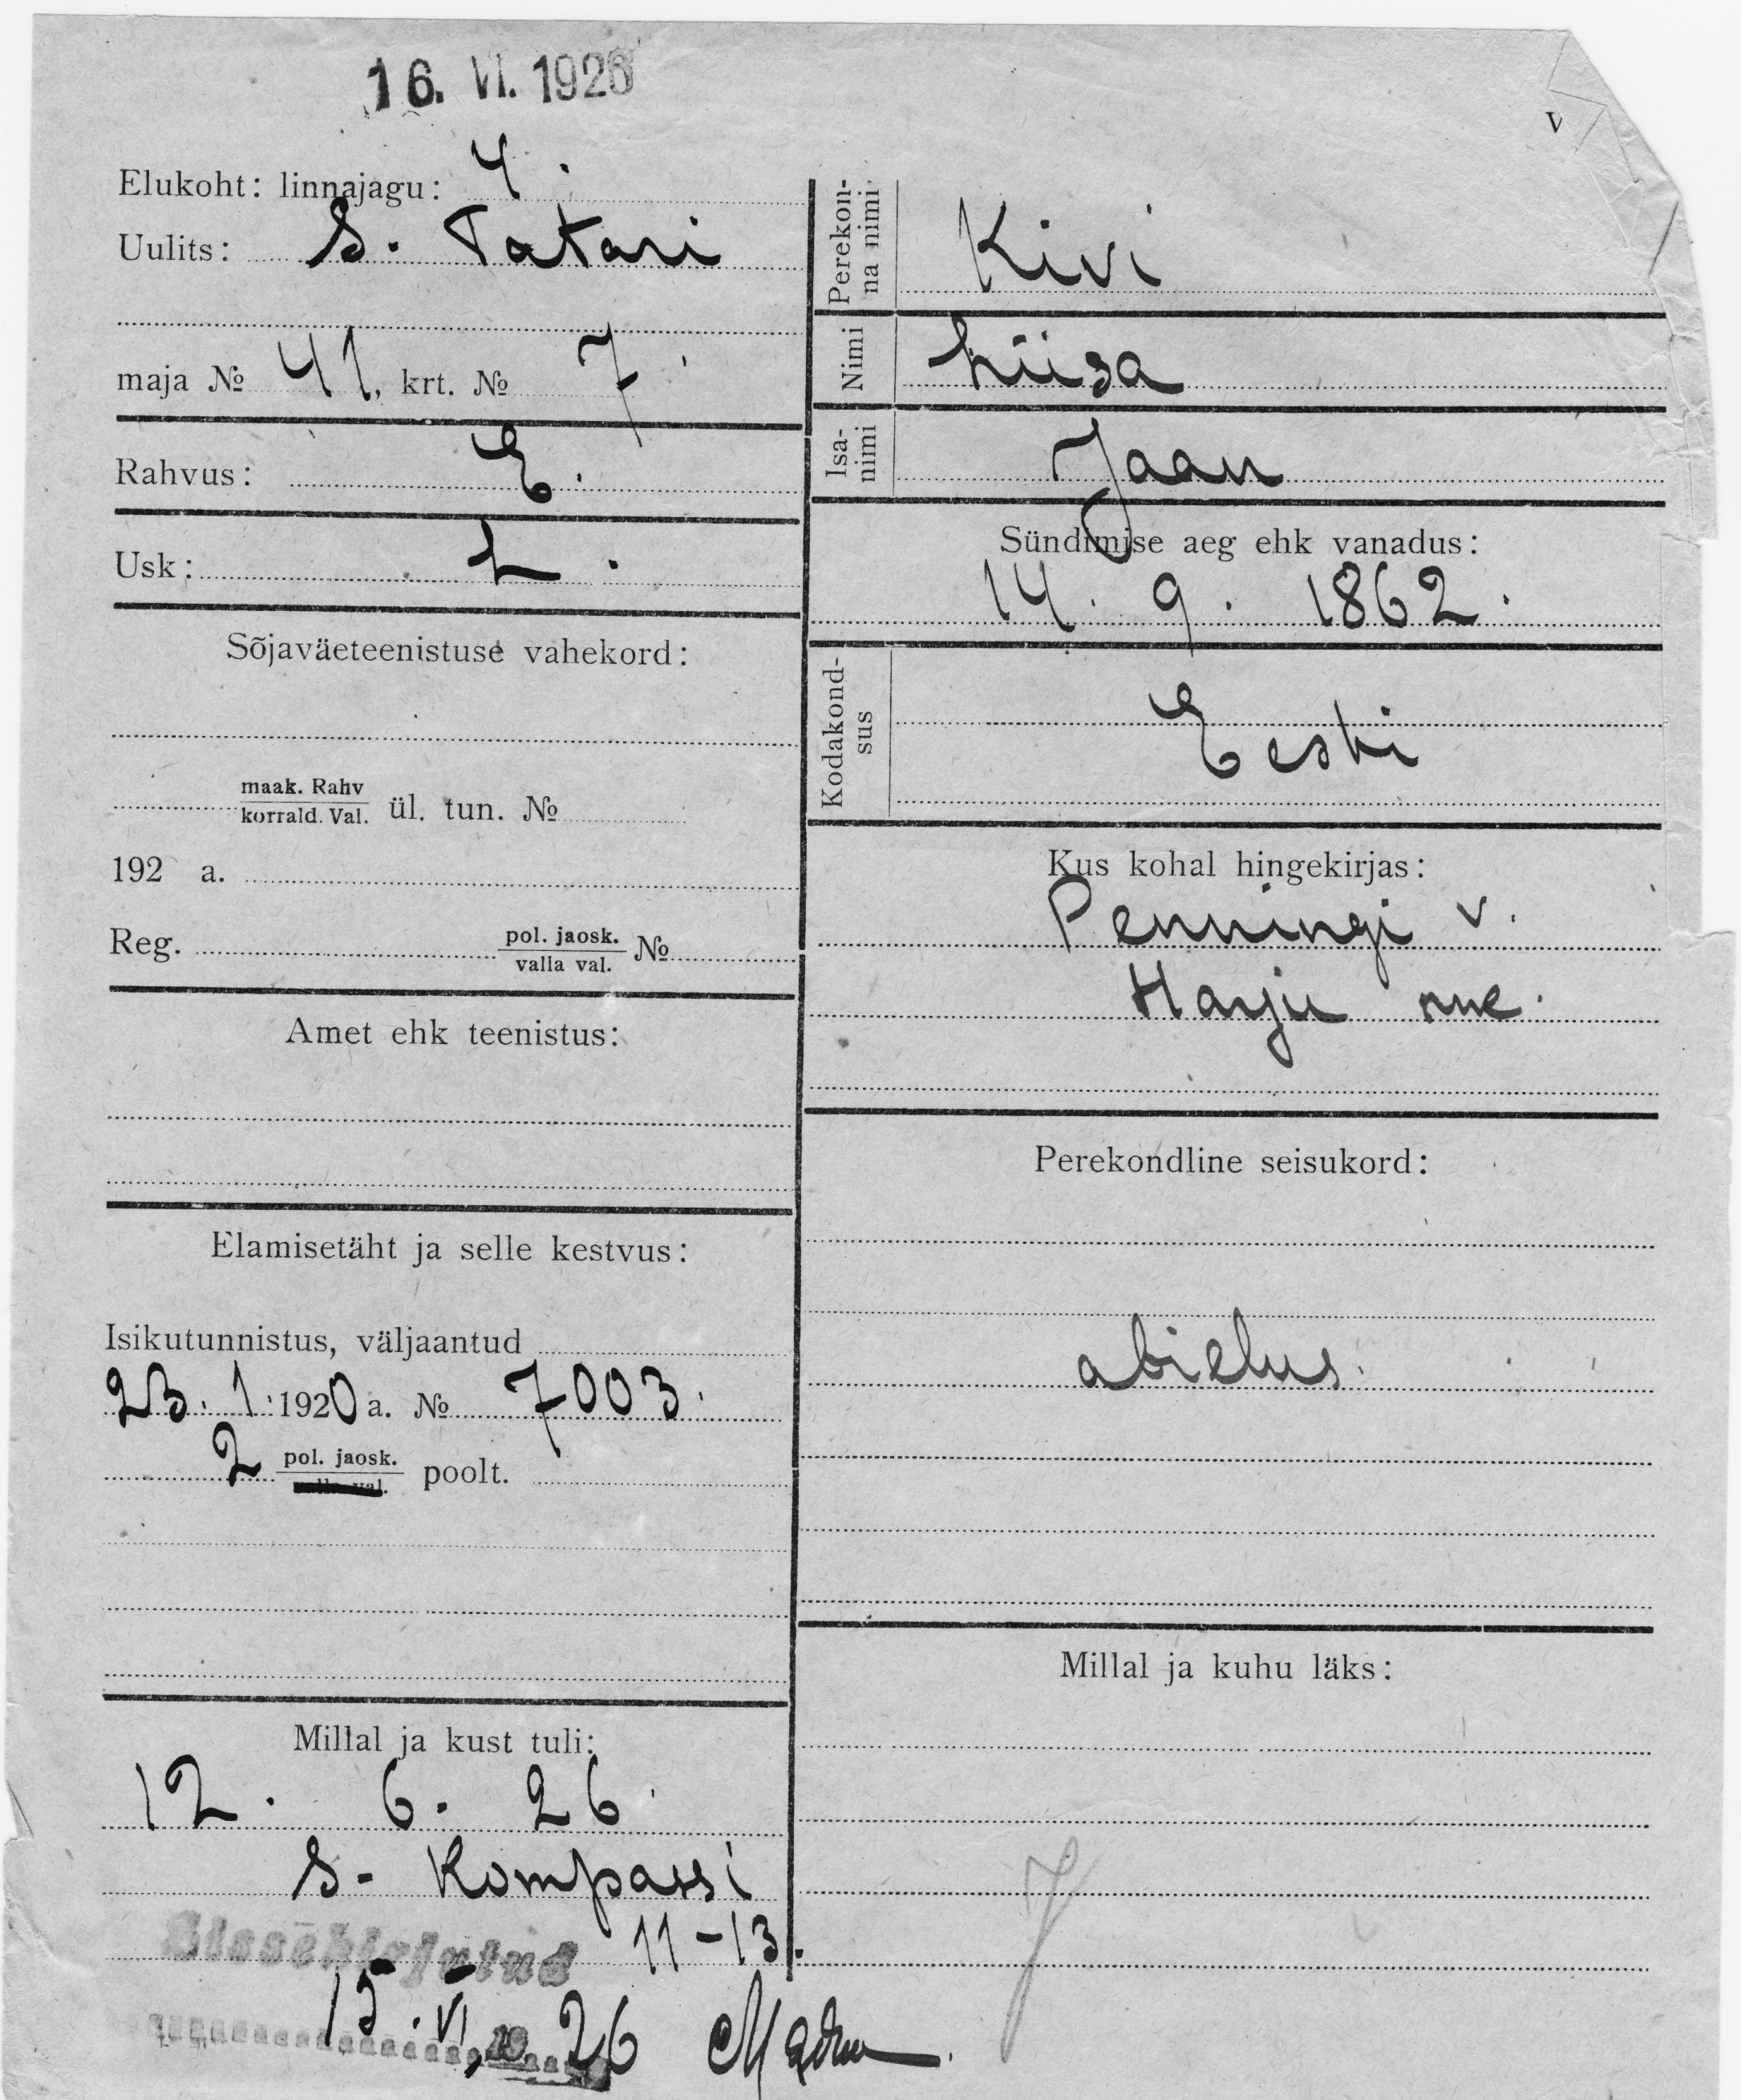 16. VI. 1926
V
Elukoht: linnajagu: 4.
Uulits: S. Tatari
maja № 41, krt. № 7
Rahvus: E.
Usk: L.
Sõjaväeteenistuse vahekord:
maak. Rahv
korrald. Val. ül. tun. №
192 a.
Reg. pol. jaosk. №
valla val.
Amet ehk teenistus:
Elamisetäht ja selle kestvus:
Isikutunnistus, väljaantud
23. 1. 1920 a. № 7003.
2 pol. jaosk. poolt.
valla val.
Millal ja kust tuli:
12. 6. 26.
S- Kompassi
11-13.
Sissekirjutud
15. VI 26
Perekon-
na nimi Kivi
Nimi Liisa
Isa-
nimi Jaan
Sündimise aeg ehk vanadus:
14. 9. 1862.
Kodakond-
sus Eesti
Kus kohal hingekirjas:
Penningi v.
Harju mk.
Perekondline seisukord:
abielus.
Millal ja kuhu läks: